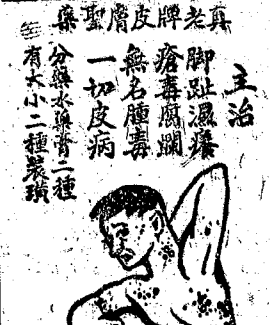 真老牌皮膚聖藥
主治
脚趾濕癢
瘡毒腐爛
無名腫毒
一切皮病
分藥水藥膏二種
有大小二種裝璜